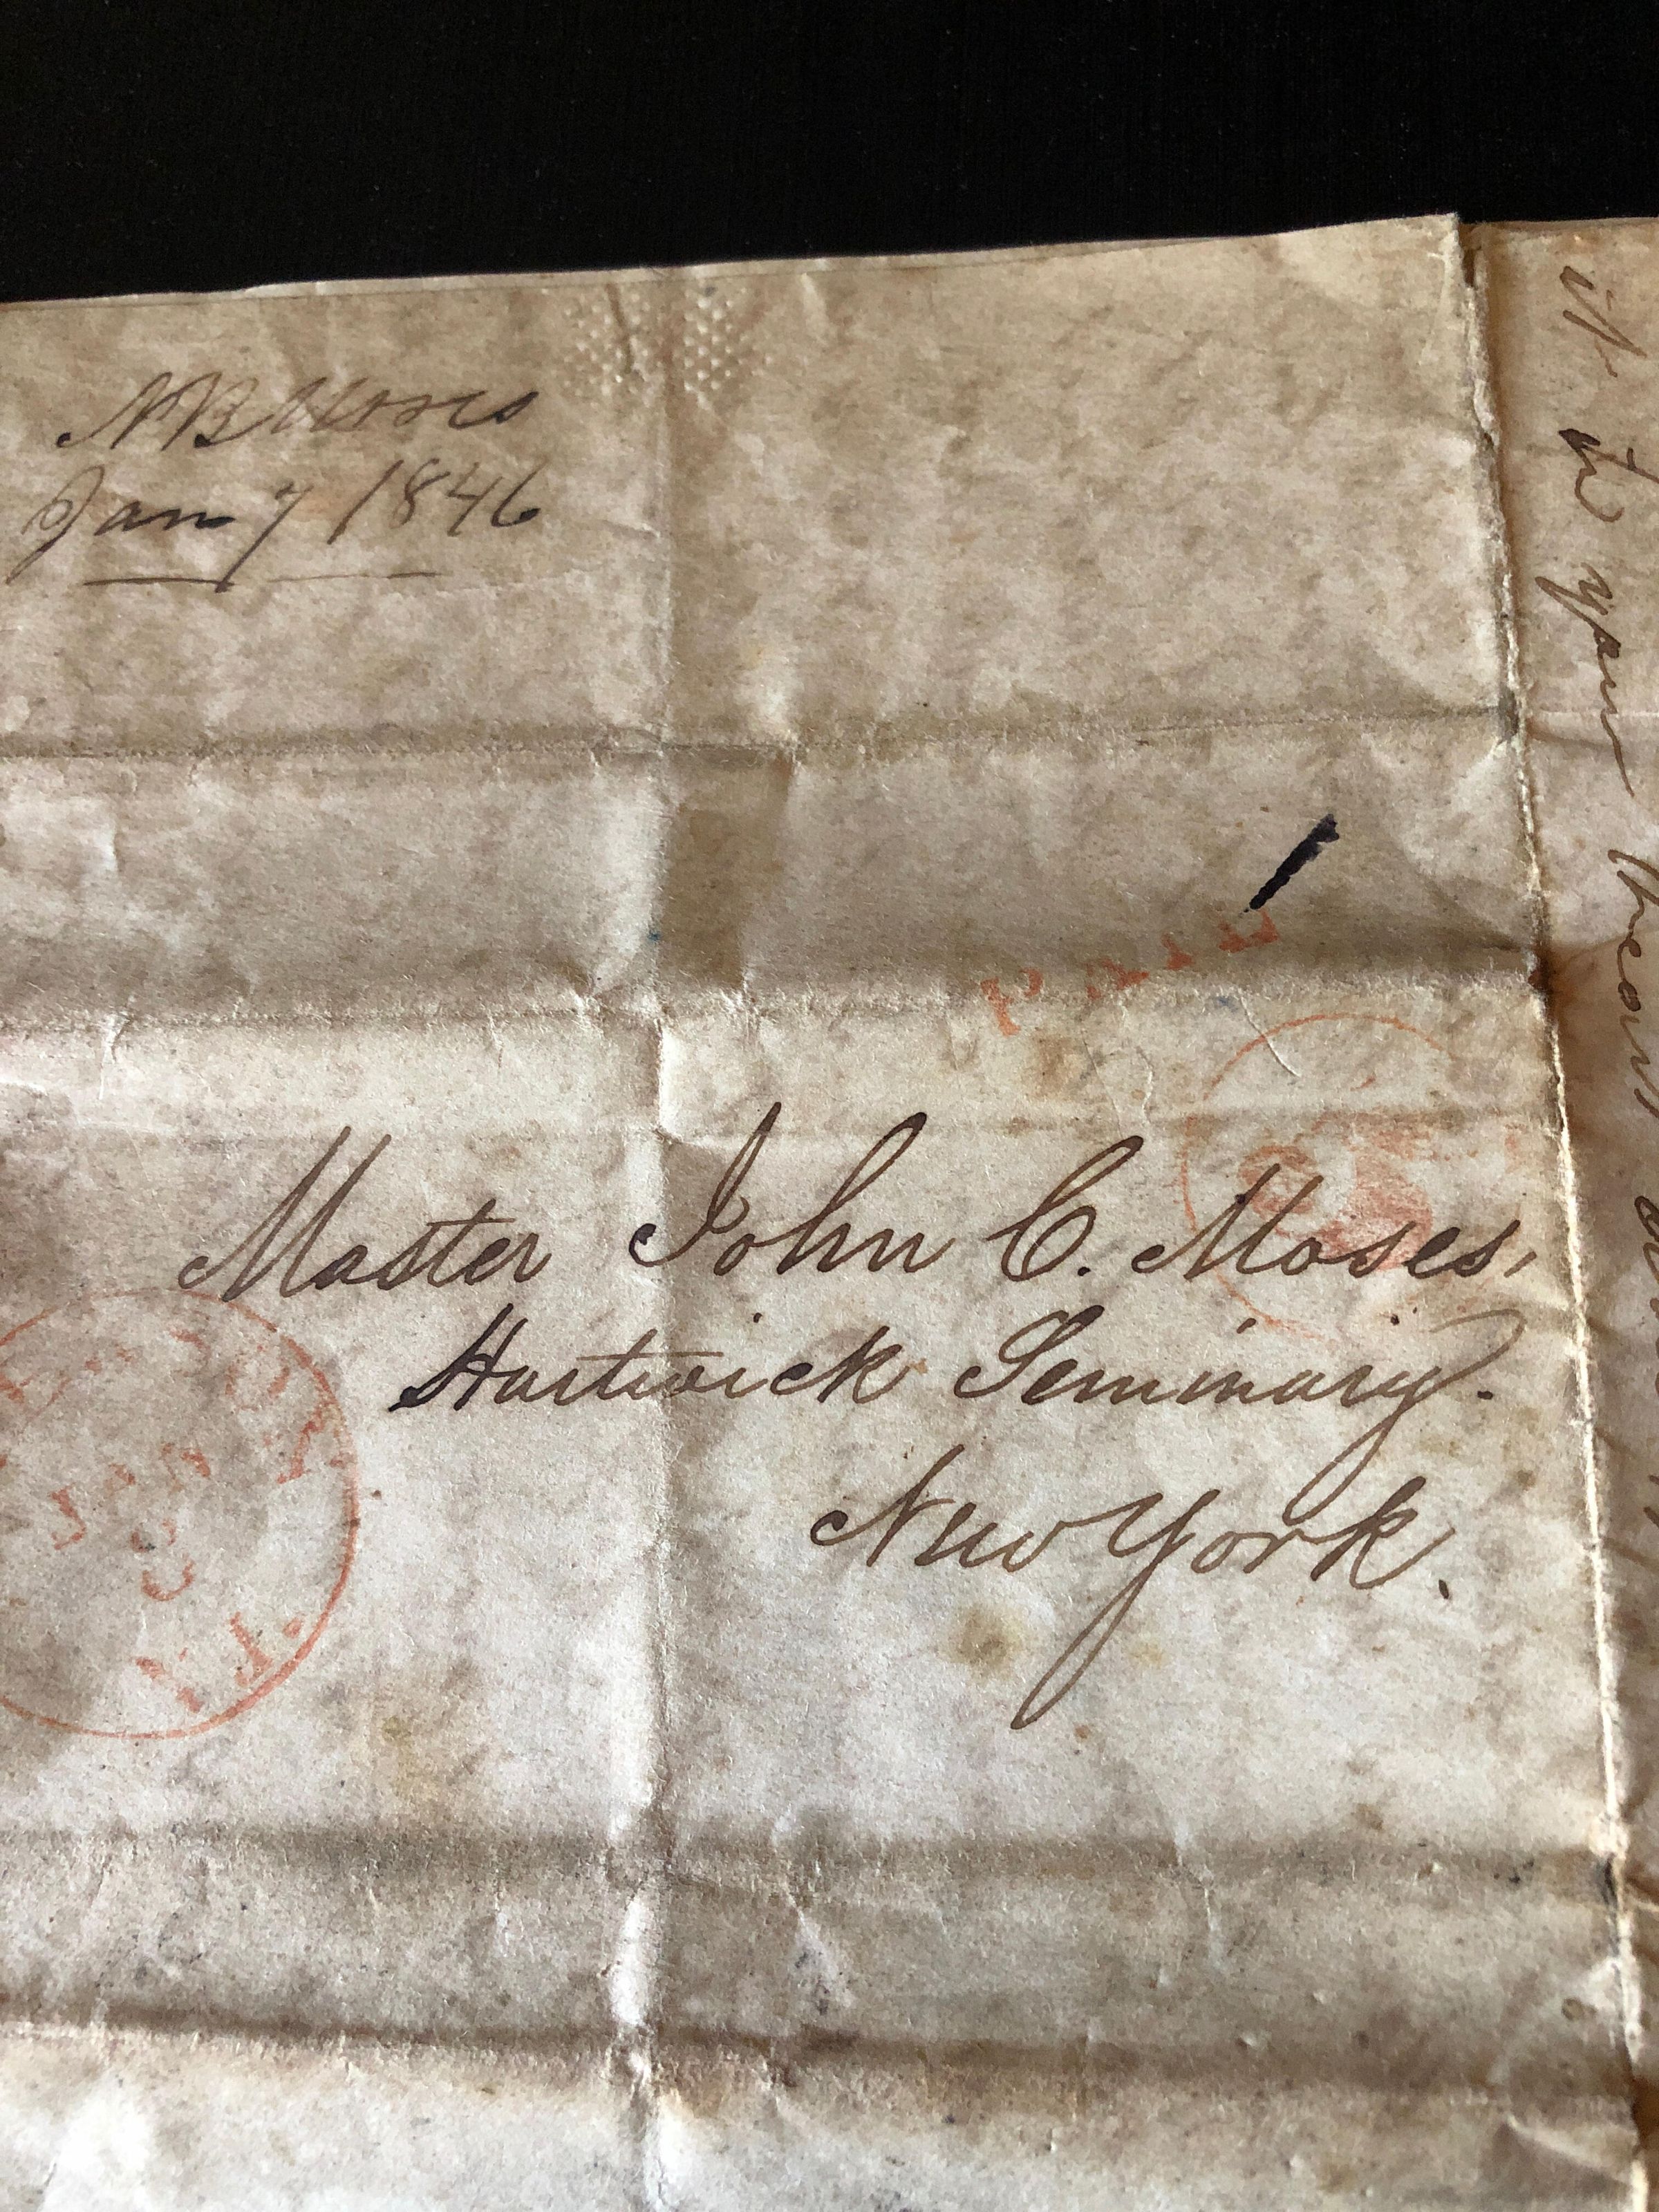 N B Moses
Jany 7 1846
PAID
Master John C. Moses,
Hartwick Seminary.
New York.
JAN
N.J.
it to your